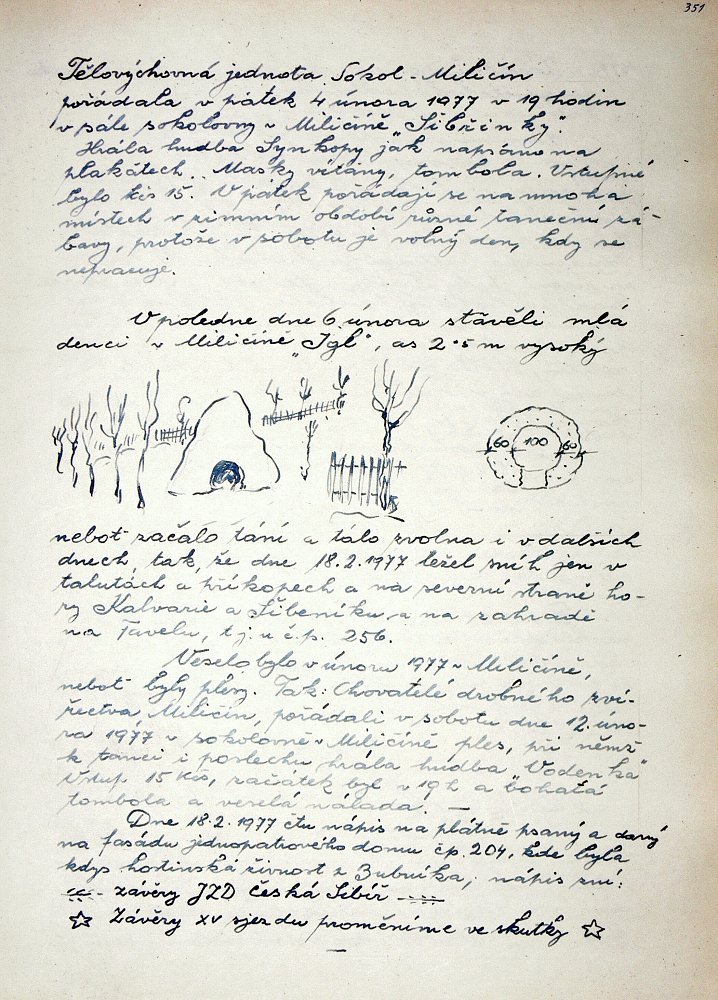 351
Tělovýchovná jednota Sokol - Miličín
pořádala v pátek 4 února 1977 v 19 hodin
v sále sokolovny v Miličíně "Šibřinky".
Hrála hudba Synkopy jak napsáno na
plakátech. Masky vítány, tombola. Vstupné
bylo Kčs 15. V pátek pořádají se na mnoha
místech v zimním období různé taneční zá-
bavy, protože v sobotu je volný den, kdy se
nepracuje.
V poledne dne 6. února stavěli mlá
denci v Miličíně "Igl", as 2·5 m vysoký
60 100 60
neboť začalo tání a tálo zvolna i v dalších
dnech, tak, že dne 18.2.1977 ležel sníh jen v
talutách a příkopech a na severní straně ho-
ry Kalvarie a Šibeníku, a na zahradě
na Tavelu, tj. u č.p. 256.
Veselo bylo v únoru 1977 v Miličíně,
neboť byly plesy. Tak: Chovatelé drobného zví-
řectva, Miličín, pořádali v sobotu dne 12. úno-
ra 1977 v sokolovně v Miličíně ples, při němž
k tanci i poslechu hrála hudba "Vodenka"
Vstup. 15 Kčs, začátek byl v 19 h a "bohatá
tombola a veselá nálada. —
Dne 18.2.1977 čtu nápis na plátně psaný a daný
na fasádu jednopatrového domu čp. 204, kde byla
kdys hostinská živnost z Bubníka, nápis zní:
závěry JZD česká Sibiř
☆ Závěry XV sjezdu proměníme ve skutky ☆